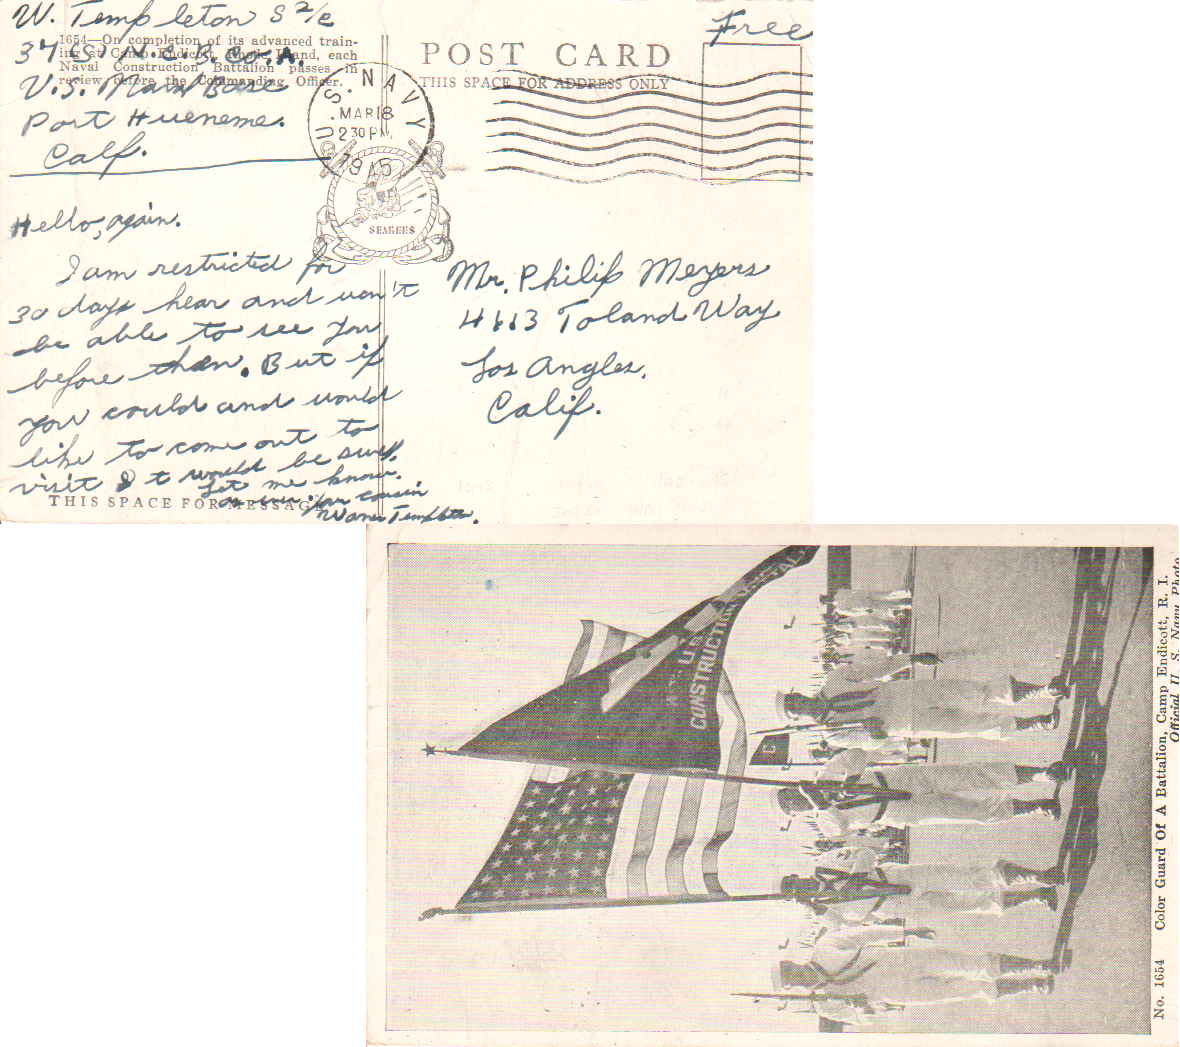 W. Templeton S 2/c
37 (S) N.C.B. Co. A.
U.S. Nav Base
Port Hueneme.
Calf.
1654—On completion of its advanced train-
ing at Camp Endicott, Rhode Island, each
Naval Construction Battalion passes in
review before the Commanding Officer.
POST CARD
THIS SPACE FOR ADDRESS ONLY
Free
U.S. NAVY
MAR 18
2 30 PM
1945
SEABEES
Hello, again.
I am restricted for
30 days hear and won't
be able to see you
before then. But if
you could and would
like to come out to
visit it would be swell.
Let me know.
as ever your cousin
Templeton.
THIS SPACE FOR MESSAGE
Mr. Philip Meyers
4613 Toland Way
Los Angles.
Calif.
U.S.
CONSTRUCTION
No. 1654 Color Guard Of A Battalion, Camp Endicott, R. I.
Official U. S. Navy Photo